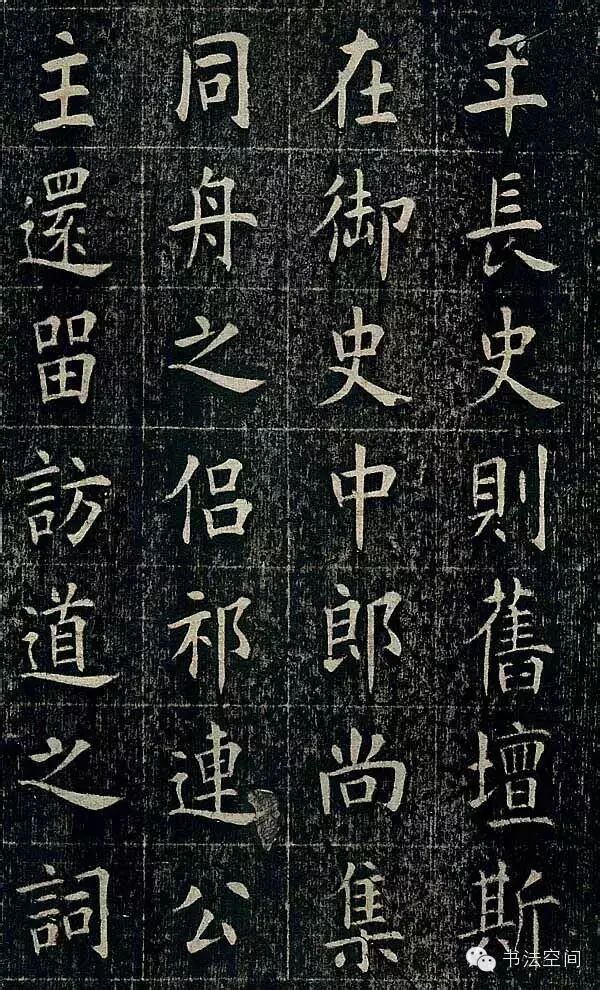 年長史則舊壇斯
在御史中郎尚集
同舟之侶祁連公
主還留訪道之詞
书法空间